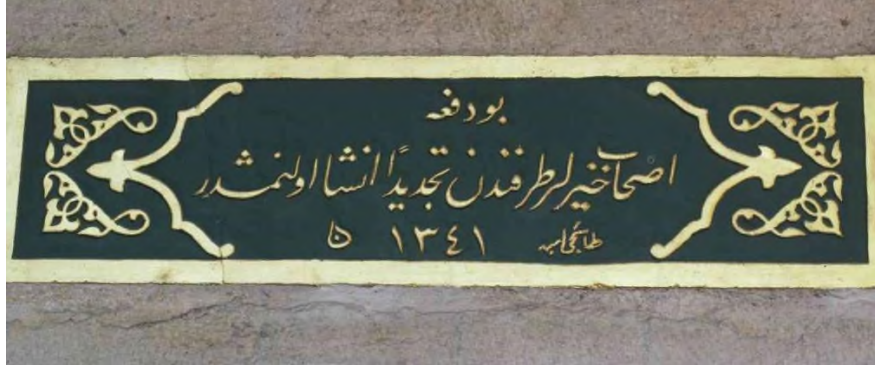 بو دفعه
اصحاب خیرلر طرفندن تجدیداً انشا اولنمشدر
١٣٤١ ن